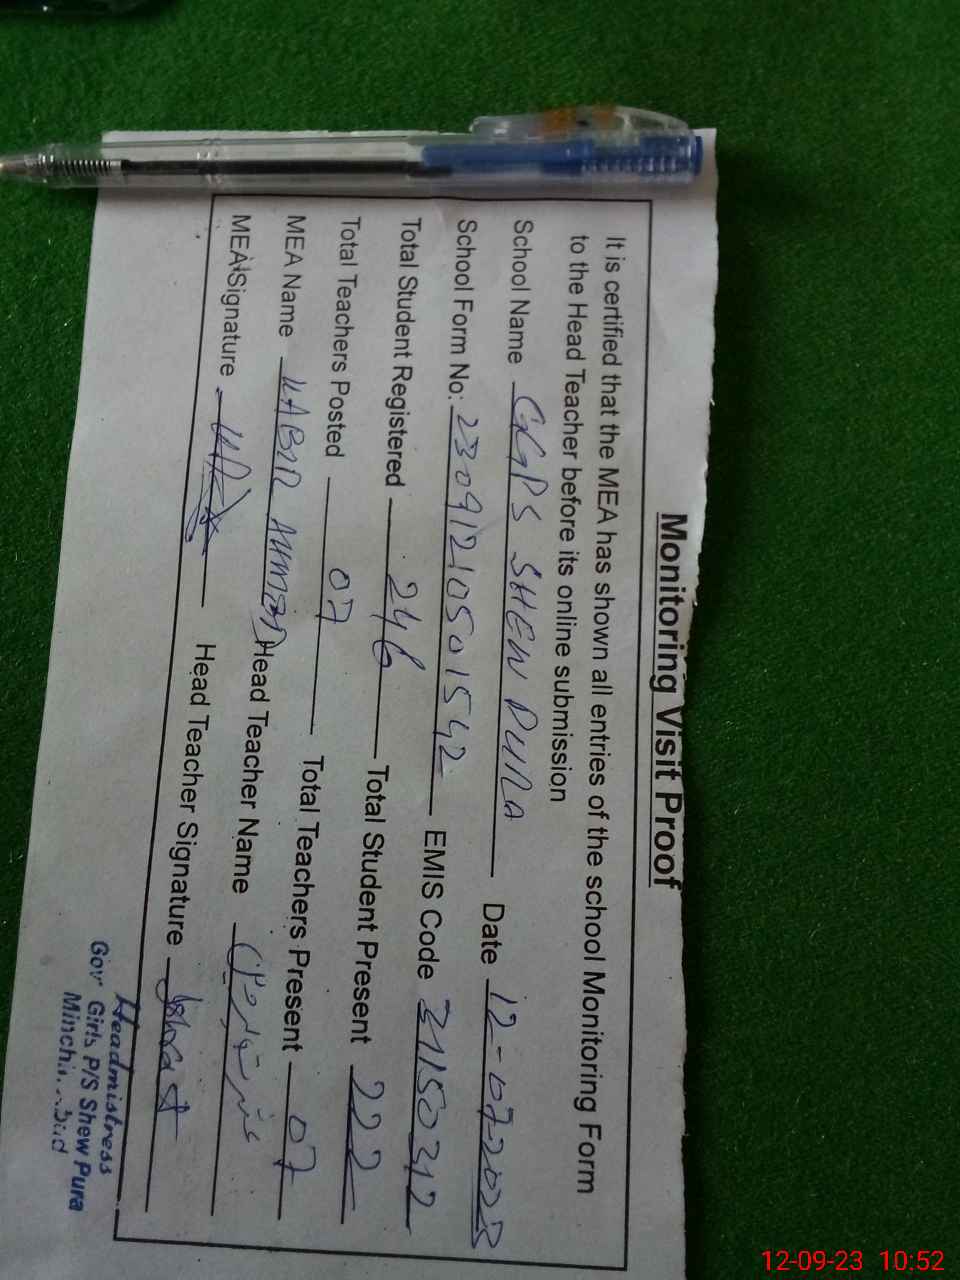 Monitoring Visit Proof
It is certified that the MEA has shown all entries of the school Monitoring Form
to the Head Teacher before its online submission
School Name GGPS SHEW PURA Date 12-07-2023
School Form No: 23091210501542 EMIS Code 31150312
Total Student Registered 246 Total Student Present 222
Total Teachers Posted 07 Total Teachers Present 07
MEA Name KABIR AHMED Head Teacher Name
MEA Signature Head Teacher Signature
Headmistress
Gov Girls P/S Shew Pura
12-09-23 10:52